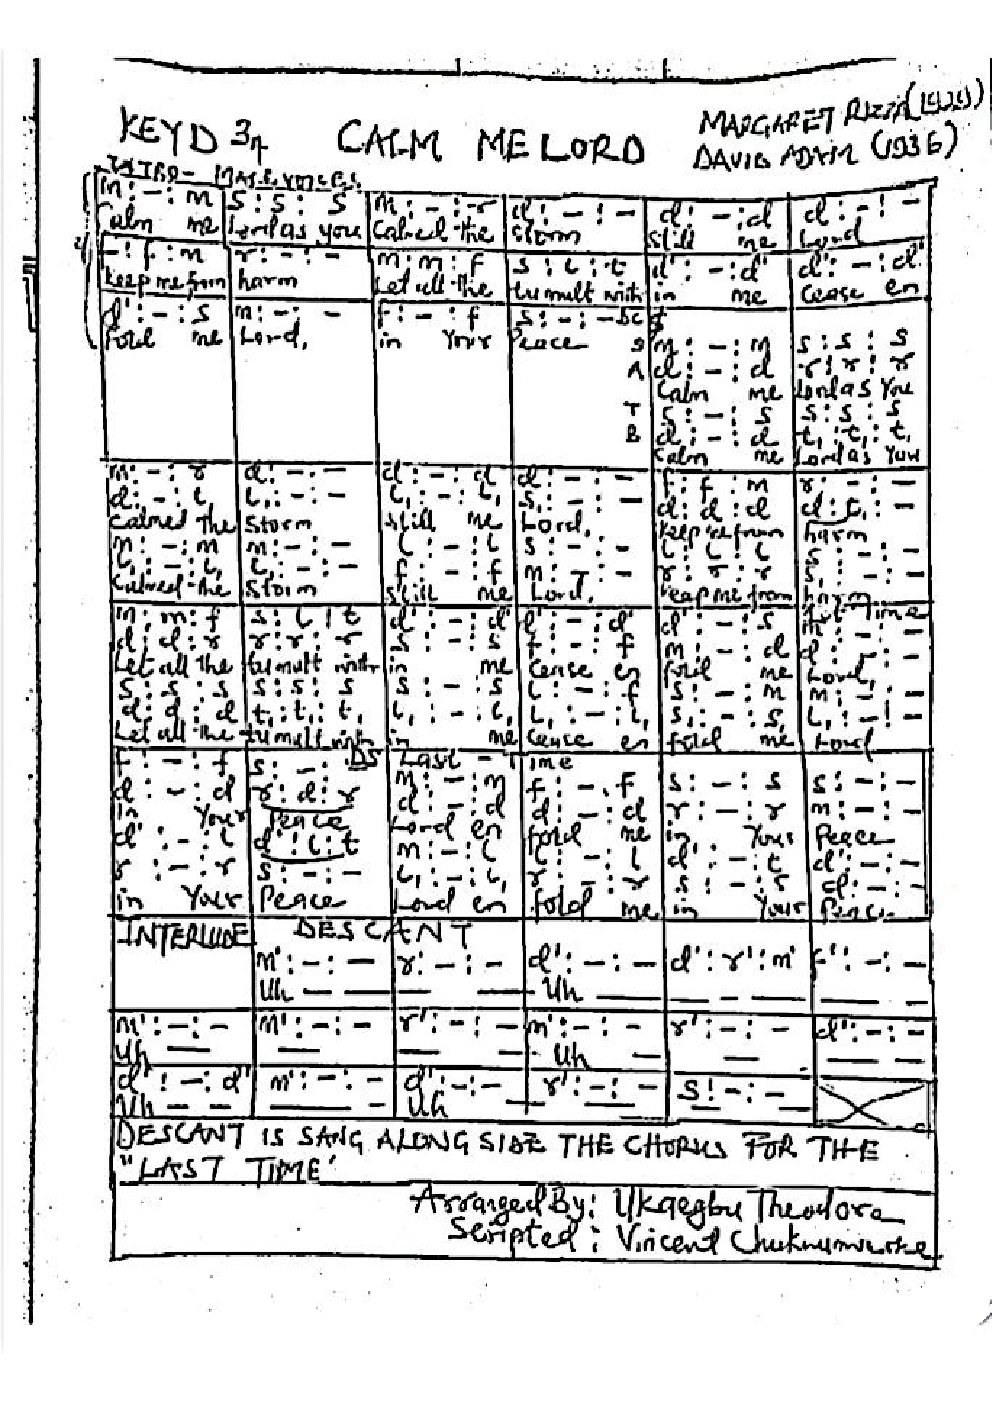 KEY D 3/4 CALM ME LORD MARGARET RIZZA (1929)
DAVID ADAM (1936)
INTRO- MALE VOICES
m : - : m s : s : s m : - : r d : - : - d : - : d d : - : -
Calm me Lord as you Calmed the Storm Still me Lord
- : f : m r : - : - m : m : f s : l : t d' : - : d' d' : - : d'
keep me from harm Let all the tumult with in me Cease en
d' : - : s m : - : - f : - : f s : - : -
Fold me Lord, in Your Peace
S m : - : m s : s : s
A d : - : d r : r : r
Calm me Lord as You
T s : - : s s : s : s
B d : - : d t, : t, : t,
Calm me Lord as You
m : - : r d : - : - d : - : d d : - : - f : f : m r : - : -
d : - : l, l, : - : - l, : - : l, s, : - : - d : d : d d : t, : -
Calmed the Storm Still me Lord, keep me from harm
m : - : m m : - : - l : - : l s : - : - l : l : l s : - : -
l, : - : l, l, : - : - f : - : f m : - : - r : r : r s, : - : -
Calmed the Storm Still me Lord, keep me from harm
m : m : f s : l : t d' : - : d' d' : - : d' d' : - : s m : - : -
d : d : r r : r : r s : - : s f : - : f m : - : d d : - : -
Let all the tumult with in me Cease en fold me Lord,
s : s : s s : s : s s : - : s l : - : f s : - : m m : - : -
d : d : d t, : t, : t, l, : - : l, l, : - : l, s, : - : s, l, : - : -
Let all the tumult with in me Cease en fold me Lord
DS Last - Time
f : - : f s : - : - m : - : m f : - : f s : - : s s : - : -
d : - : d r : d : r d : - : d d : - : d r : - : r m : - : -
in Your Peace Lord en fold me in Your Peace
d' : - : l d' : l : t m : - : l l : - : l d' : - : t d' : - : -
r : - : r s : - : - l, : - : l, r : - : r s : - : s d : - : -
in Your Peace Lord en fold me in Your Peace
INTERLUDE DESCANT
m' : - : - r' : - : - d' : - : - d' : r' : m' f' : - : -
Uh — — — — Uh — — — — — — —
m' : - : - m' : - : - r' : - : - m' : - : - r' : - : - d' : - : -
Uh — — — — Uh — — — —
d' : - : d' m' : - : - d' : - : - r' : - : - s : - : -
Uh — — — — Uh — — — — —
DESCANT IS SANG ALONG SIDE THE CHORUS FOR THE
"LAST TIME"
Arranged By: Ukaegbu Theodore
Scripted : Vincent